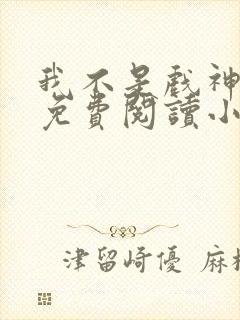 我不是戲神
免費閱讀小
津留崎優 麻